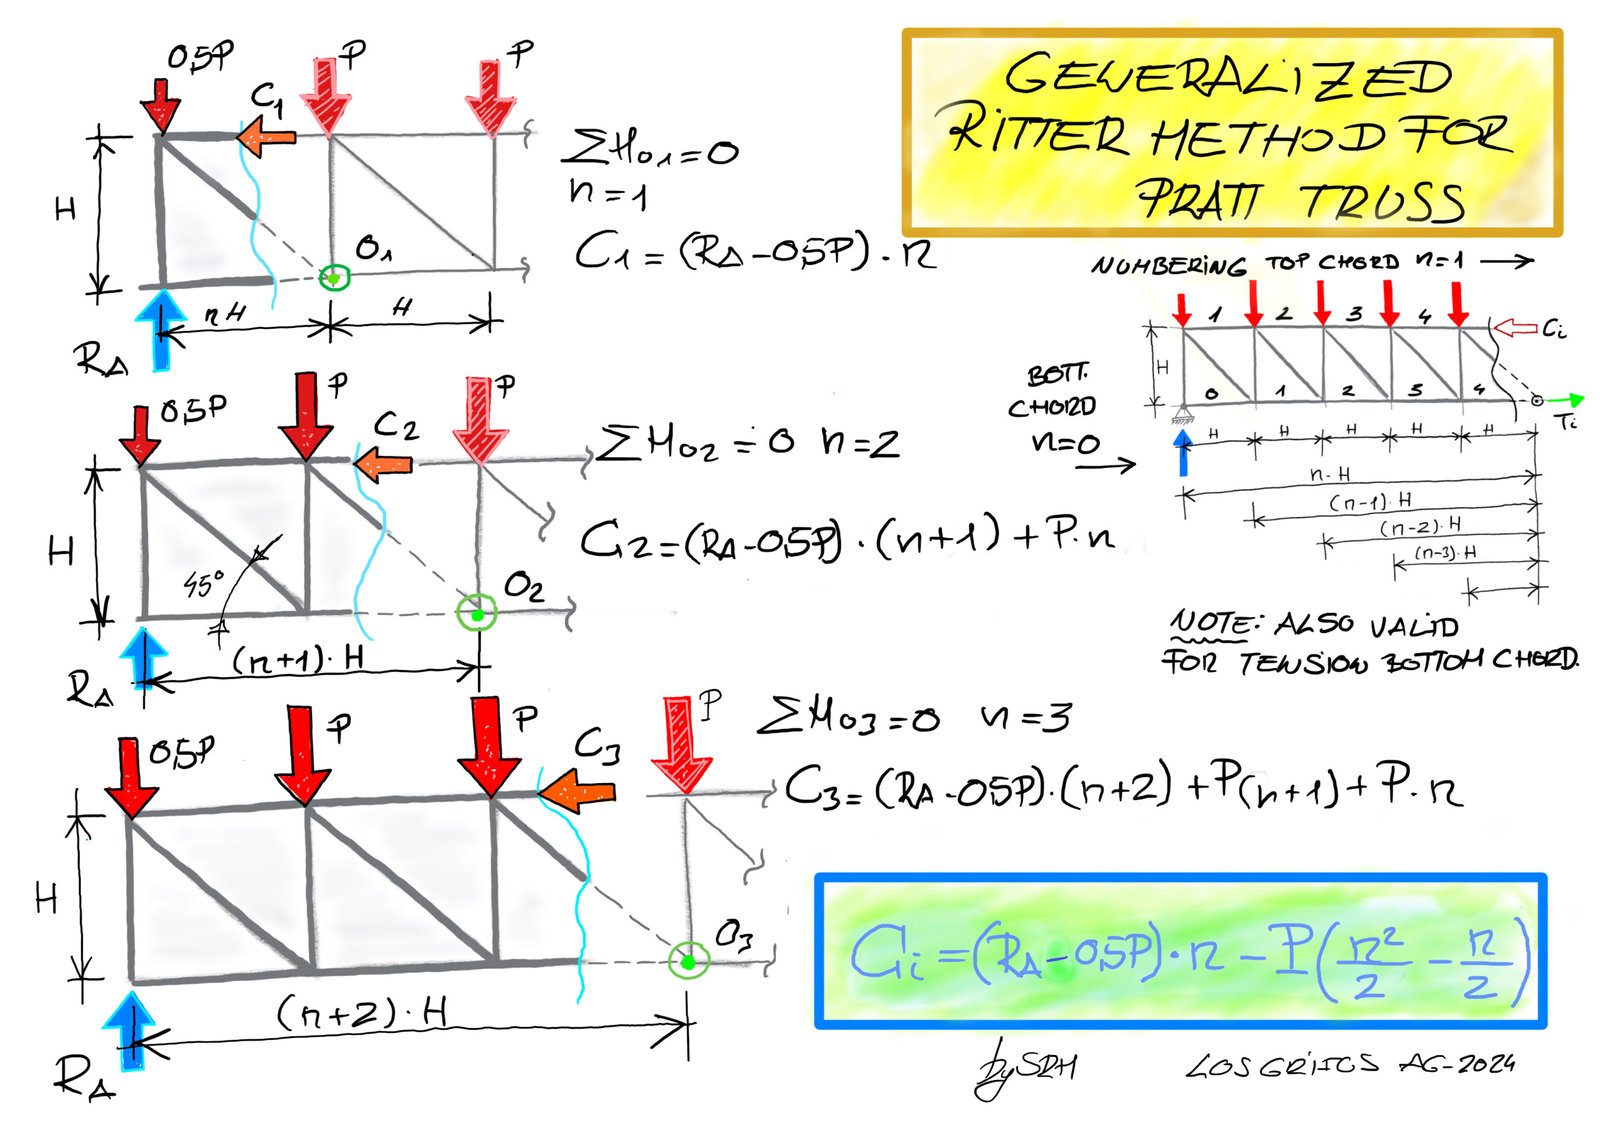 GENERALIZED
RITTER METHOD FOR
PRATT TRUSS
0,5P
P
P
C1
H
O1
nH
H
RA
ΣMO1=0
n=1
C1=(RA-0,5P)·n
NUMBERING TOP CHORD n=1
1
2
3
4
Ci
H
BOTT.
CHORD
n=0
0
1
2
3
4
Ti
H
H
H
H
H
n·H
(n-1)·H
(n-2)·H
(n-3)·H
NOTE: ALSO VALID
FOR TENSION BOTTOM CHORD.
0,5P
P
P
C2
H
45°
O2
(n+1)·H
RA
ΣMO2=0 n=2
C2=(RA-0,5P)·(n+1)+P·n
0,5P
P
P
C3
P
H
O3
(n+2)·H
RA
ΣMO3=0 n=3
C3=(RA-0,5P)·(n+2)+P(n+1)+P·n
Ci=(RA-0,5P)·n-P(n²/2-n/2)
by SRM